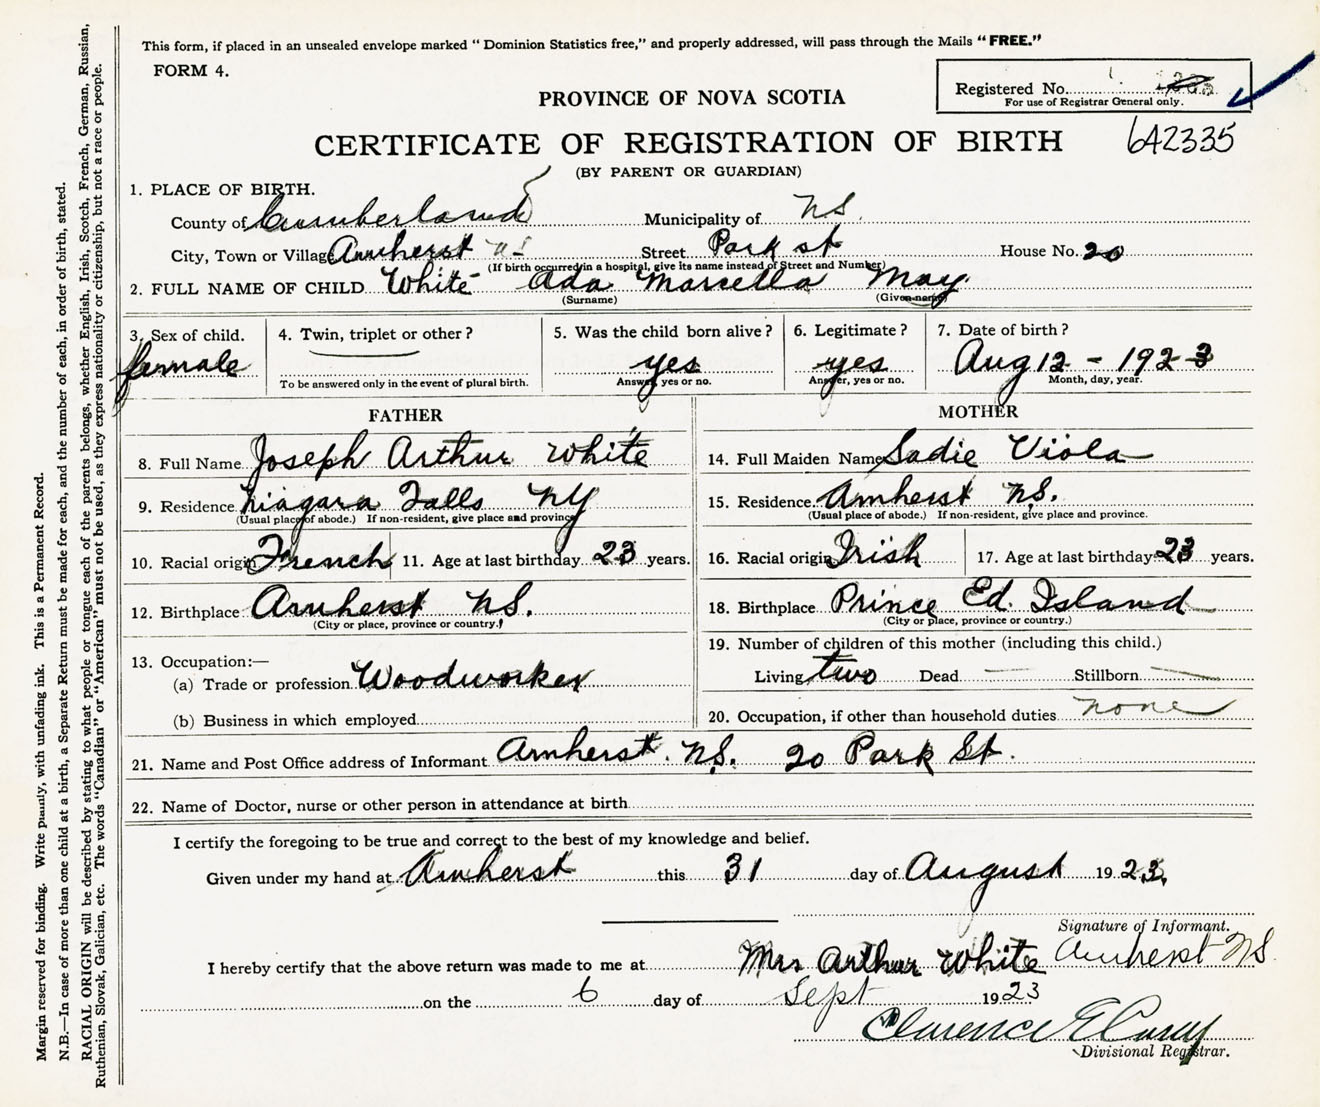 This form, if placed in an unsealed envelope marked “Dominion Statistics free,” and properly addressed, will pass through the Mails “FREE.”
FORM 4.
Registered No.
For use of Registrar General only.
PROVINCE OF NOVA SCOTIA
CERTIFICATE OF REGISTRATION OF BIRTH 642335
(BY PARENT OR GUARDIAN)
1. PLACE OF BIRTH.
County of Cumberland Municipality of NS.
City, Town or Village Amherst NS Street Park st House No. 20
(If birth occurred in a hospital, give its name instead of Street and Number)
2. FULL NAME OF CHILD White Ada Marcella May
(Surname) (Given name)
3. Sex of child. 4. Twin, triplet or other? 5. Was the child born alive? 6. Legitimate? 7. Date of birth?
female yes yes Aug 12 - 1923
To be answered only in the event of plural birth. Answer, yes or no. Answer, yes or no. Month, day, year.
FATHER MOTHER
8. Full Name Joseph Arthur White 14. Full Maiden Name Sadie Viola
9. Residence Niagara Falls NY 15. Residence Amherst NS.
(Usual place of abode.) If non-resident, give place and province. (Usual place of abode.) If non-resident, give place and province.
10. Racial origin French 11. Age at last birthday 23 years. 16. Racial origin Irish 17. Age at last birthday 23 years.
12. Birthplace Amherst NS. 18. Birthplace Prince Ed. Island
(City or place, province or country.) (City or place, province or country.)
13. Occupation:— 19. Number of children of this mother (including this child.)
(a) Trade or profession Woodworker Living two Dead — Stillborn —
(b) Business in which employed 20. Occupation, if other than household duties none
21. Name and Post Office address of Informant Amherst. NS. 20 Park St.
22. Name of Doctor, nurse or other person in attendance at birth
I certify the foregoing to be true and correct to the best of my knowledge and belief.
Given under my hand at Amherst this 31 day of August 1923.
Signature of Informant.
I hereby certify that the above return was made to me at Mrs Arthur White Amherst NS
on the 6 day of Sept 1923
Clarence E Casey
Divisional Registrar.
Margin reserved for binding. Write plainly, with unfading ink. This is a Permanent Record.
N.B.—In case of more than one child at a birth, a Separate Return must be made for each, and the number of each, in order of birth, stated.
RACIAL ORIGIN will be described by stating to what people or tongue each of the parents belongs, whether English, Irish, Scotch, French, German, Russian,
Ruthenian, Slovak, Galician, etc. The words “Canadian” or “American” must not be used, as they express nationality or citizenship, but not a race or people.